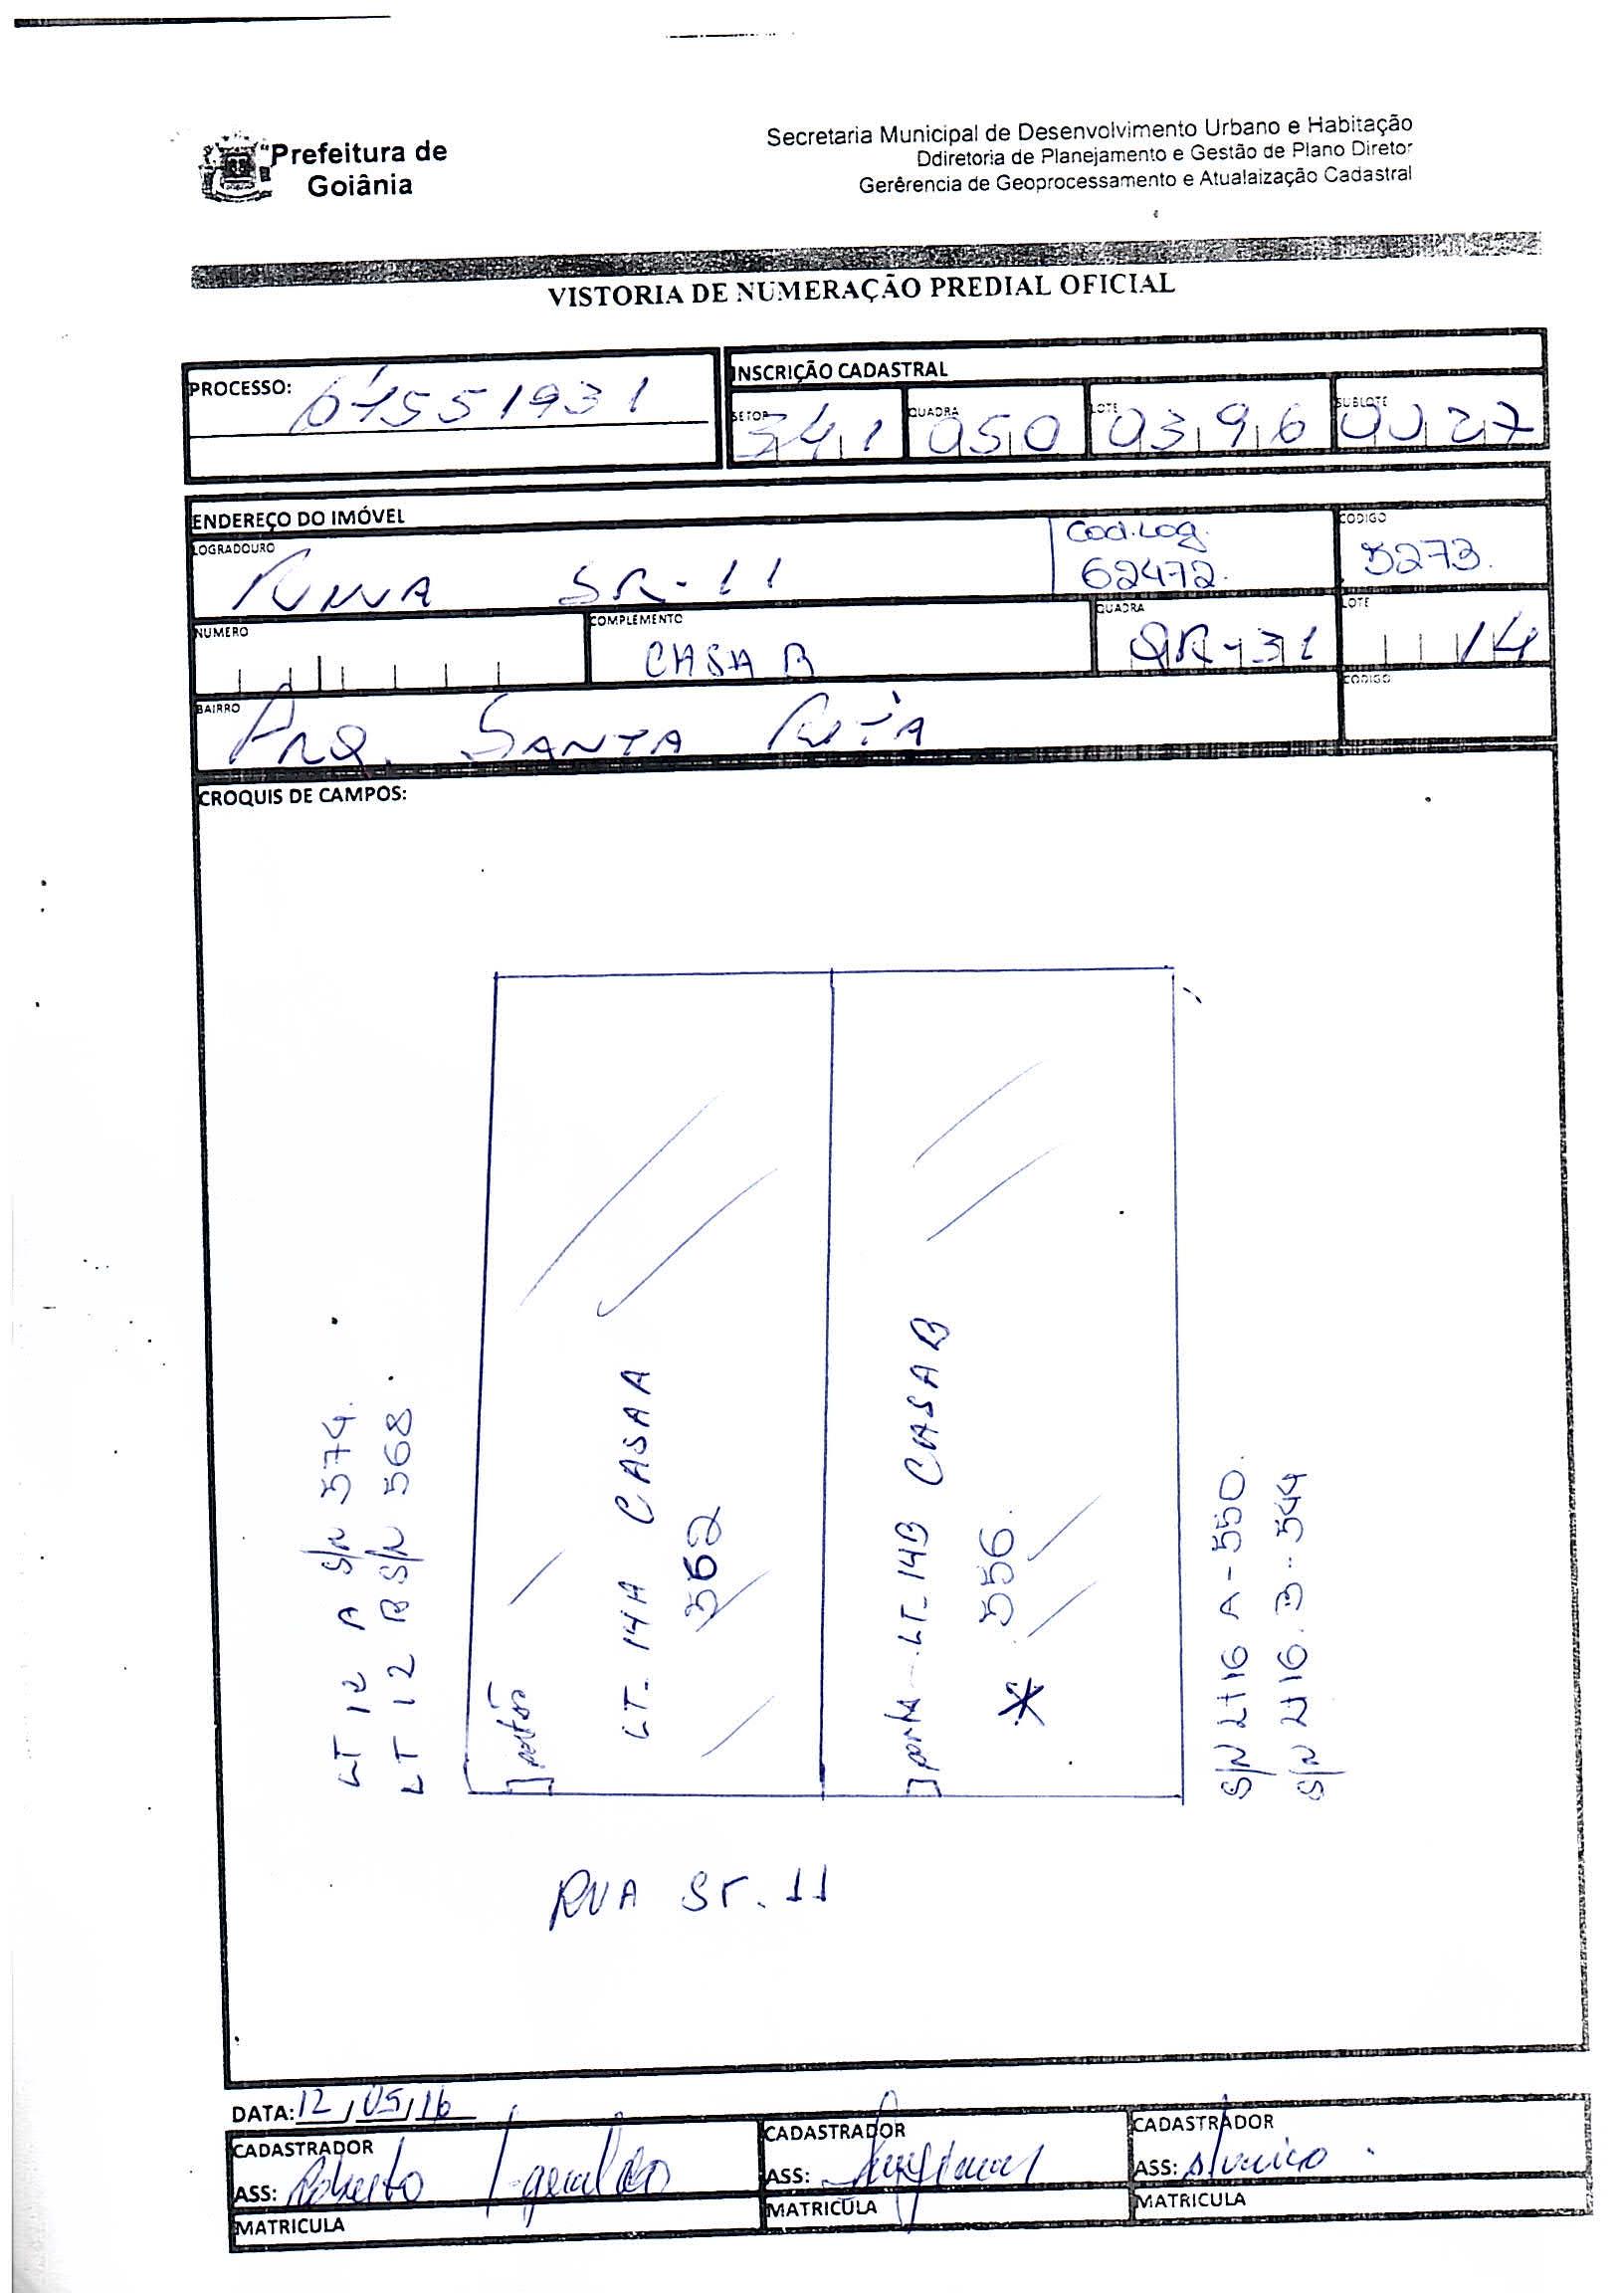 Prefeitura de
Goiânia
Secretaria Municipal de Desenvolvimento Urbano e Habitação
Ddiretoria de Planejamento e Gestão de Plano Diretor
Gerêrencia de Geoprocessamento e Atualaização Cadastral
VISTORIA DE NUMERAÇÃO PREDIAL OFICIAL
PROCESSO: 67551931
INSCRIÇÃO CADASTRAL
SETOR 341 QUADRA 050 LOTE 0396 SUBLOTE 0027
ENDEREÇO DO IMÓVEL
LOGRADOURO SR-11
Cod.Log. 62472.
CODIGO 5273.
NUMERO
COMPLEMENTO CASA B
QUADRA QR-31
LOTE 14
BAIRRO PRQ. SANTA RITA
CODIGO
CROQUIS DE CAMPOS:
LT 12 A S/N 574.
LT 12 B S/N 568.
portão
LT- 14A CASA A
562
LT- 14B CASA B
* 556.
S/N Lt 16 A-550.
S/N Lt 16. B-544
RUA Sr. 11
DATA: 12/05/16
CADASTRADOR
ASS: Roberto
MATRICULA
CADASTRADOR
ASS:
MATRICULA
CADASTRADOR
ASS:
MATRICULA